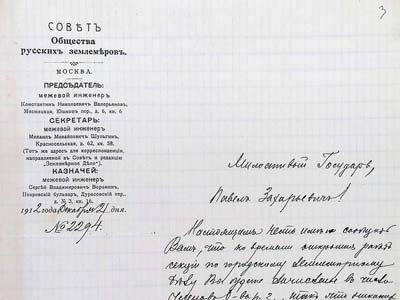 3
СОВѢТЪ
Общества
русскихъ землемѣровъ.
МОСКВА.
ПРЕДСѢДАТЕЛЬ:
межевой инженеръ
Константинъ Николаевичъ Валерьяновъ,
Мясницкая, Юшковъ пер., д. 6, кв. 6
СЕКРЕТАРЬ:
межевой инженеръ
Михаилъ Михайловичъ Шульгинъ,
Красносельская, д. 62, кв. 58.
(Тотъ же адресъ для корреспонденціи,
направляемой въ Совѣтъ и редакцію
„Землемѣрное Дѣло").
КАЗНАЧЕЙ:
межевой инженеръ
Сергѣй Владиміровичъ Воронинъ,
Покровскій бульваръ, Дурасовскій пер.,
д. № 3, кв. 16.
1912 года Декабря 21 дня.
№ 2294.
Милостивый Государь,
Павелъ Захарьевичъ!
Настоящимъ честь имѣю сообщить
Вамъ, что ко времени открытія
секціи по городскому
дѣлу Вы будете зачислены въ число